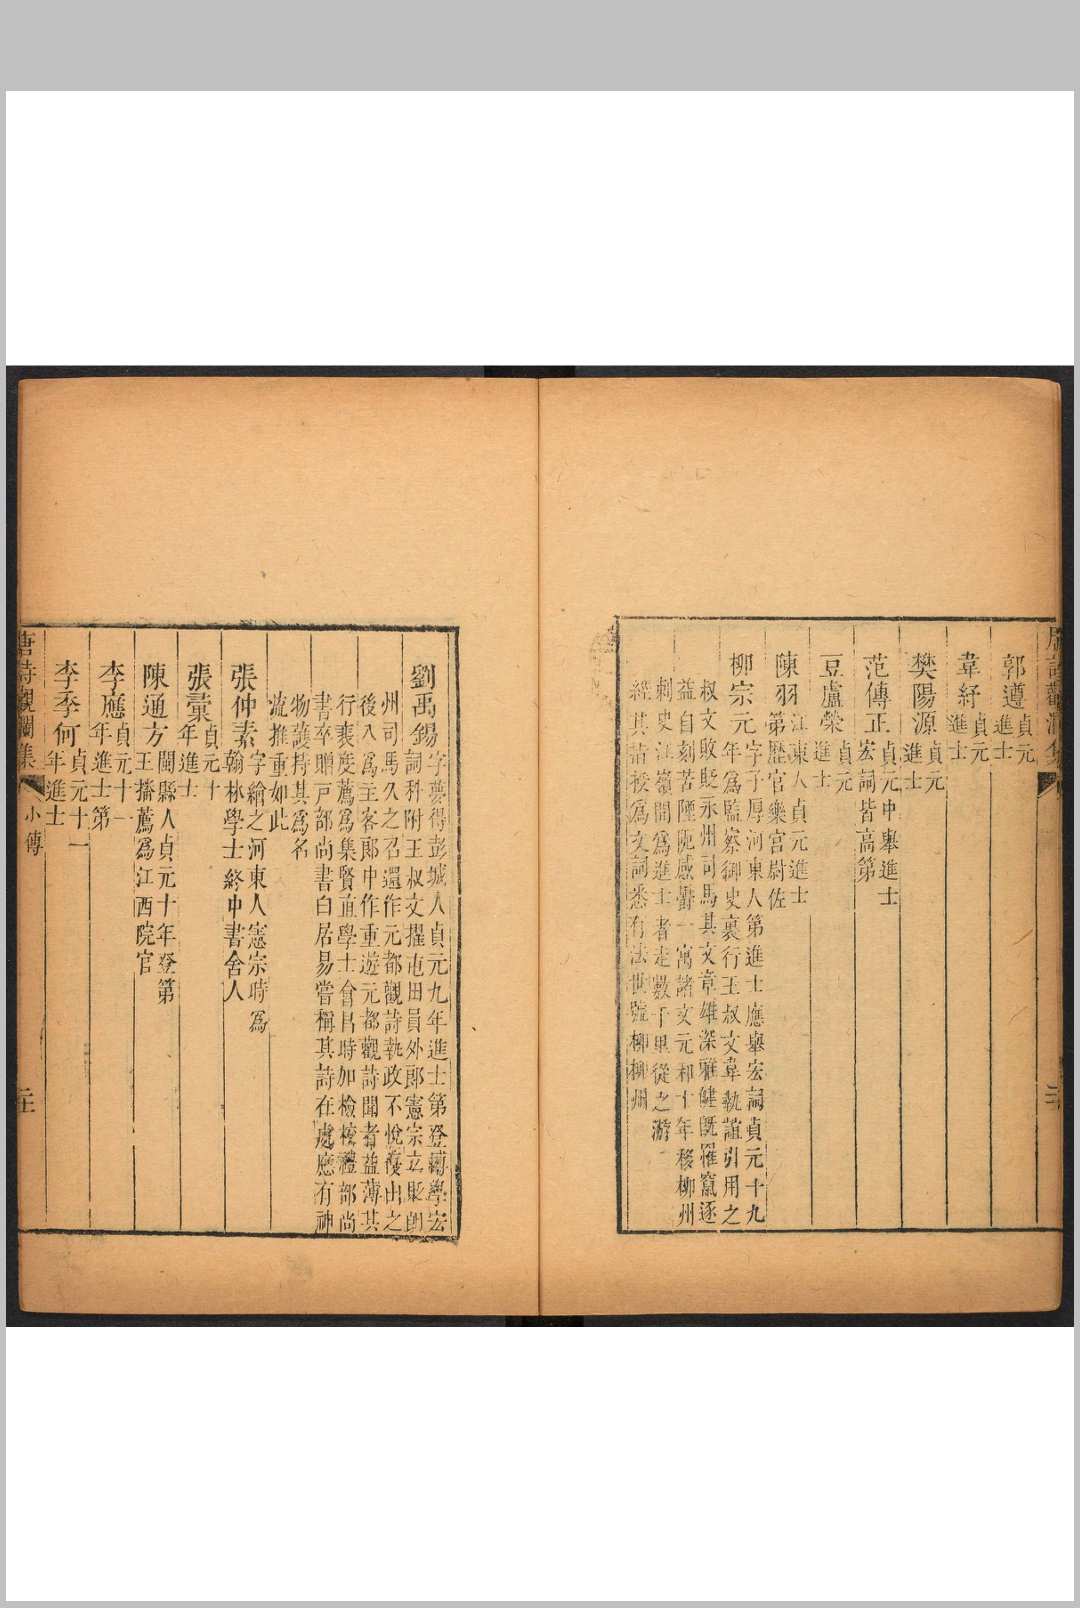 郭遵 貞元
進士
韋紓 貞元
進士
樊陽源 貞元
進士
范傳正 貞元中舉進士
宏詞皆高第
豆盧榮 貞元
進士
陳羽 江東人貞元進士
第歷官樂宮尉佐
柳宗元 字子厚河東人第進士應舉宏詞貞元十九
年為監察御史裏行王叔文韋執誼引用之
叔文敗貶永州司馬其文章雄深雅健旣罹竄逐
益自刻苦堙阨感鬱一寓諸文元和十年移柳州
刺史江嶺間爲進士者走數千里從之游
經其詰授爲文詞悉有法世號柳柳州
劉禹錫 字夢得彭城人貞元九年進士第登博學宏
詞科附王叔文擢屯田員外郞憲宗立貶朗
州司馬久之召還作元都觀詩執政不悅復出之
後入爲主客郞中作重遊元都觀詩聞者益薄其
行裴度薦爲集賢直學士會昌時加檢校禮部尚
書卒贈戸部尚書白居易嘗稱其詩在處應有神
物護持其爲名
流推重如此
張仲素 字繪之河東人憲宗時爲
翰林學士終中書舍人
張彙 貞元十
年進士
陳通方 閩縣人貞元十年登第
王播薦爲江西院官
李應 貞元十一
年進士第
李季何 貞元十一
年進士
唐詩觀瀾集 小傳